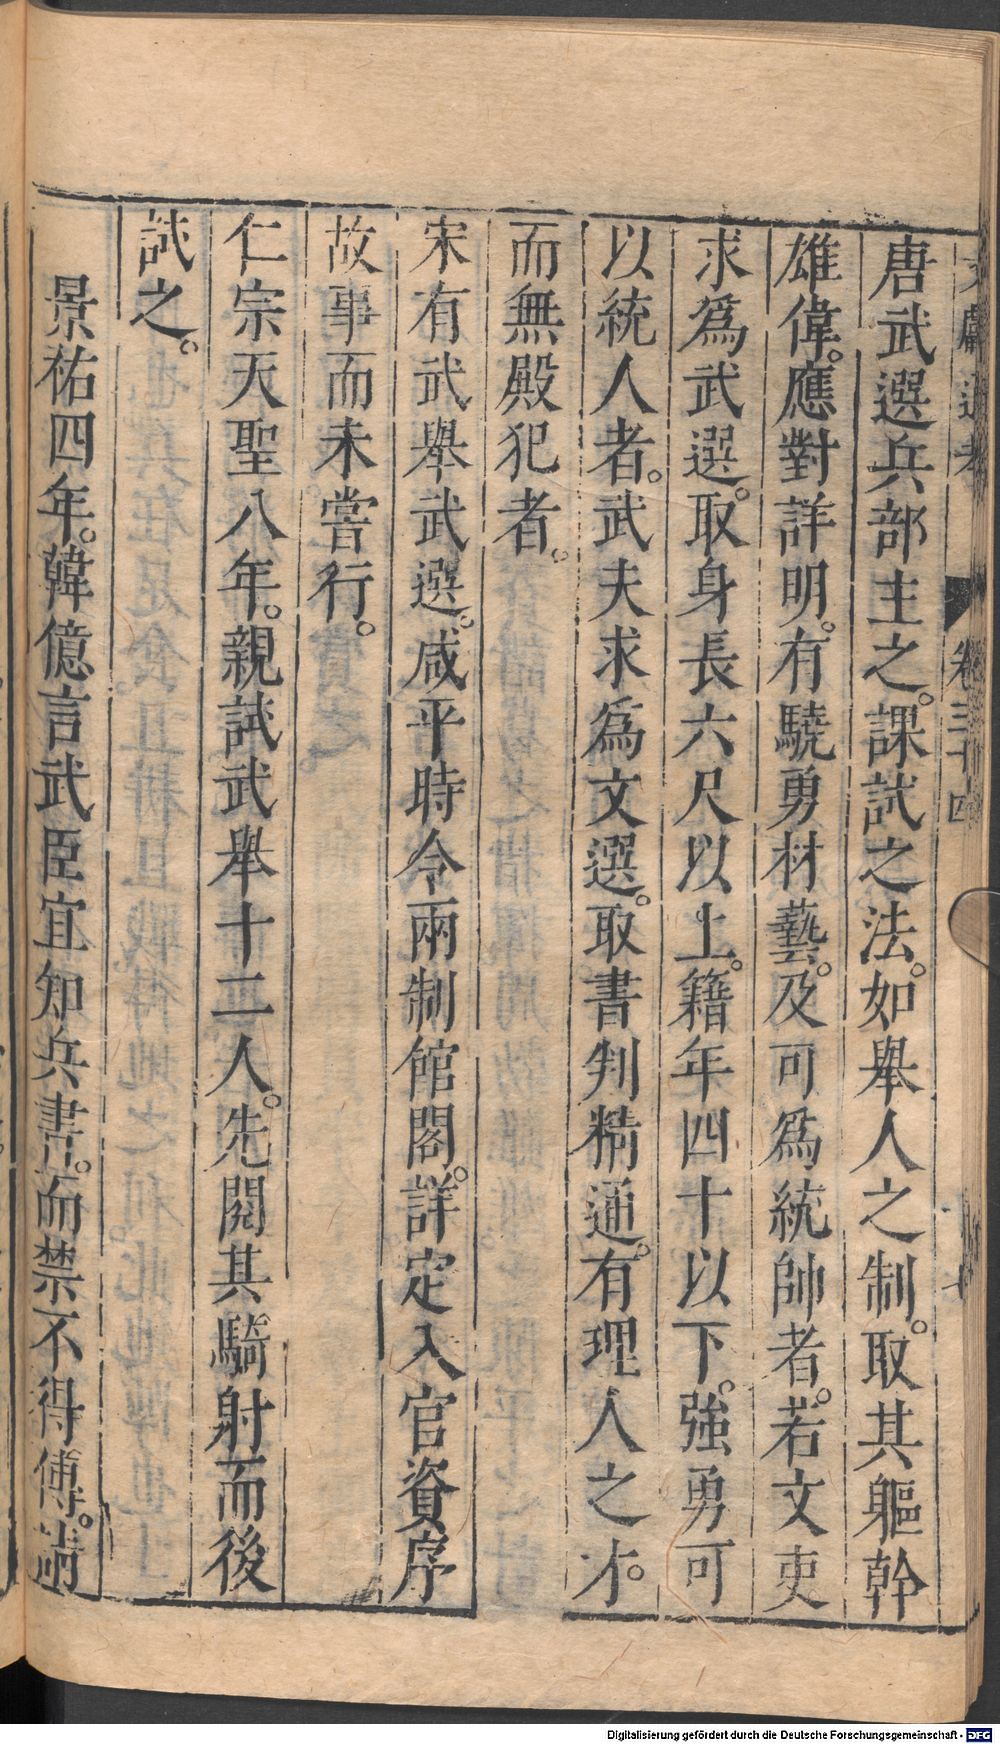 文獻通考 卷三十四
唐武選兵部主之。課試之法。如舉人之制。取其軀幹
雄偉。應對詳明。有驍勇材藝。及可爲統帥者。若文吏
求爲武選。取身長六尺以上。籍年四十以下。強勇可
以統人者。武夫求爲文選。取書判精通。有理人之才。
而無殿犯者。
宋有武舉武選。咸平時令兩制館閣。詳定入官資序
故事而未嘗行。
仁宗天聖八年。親試武舉十二人。先閱其騎射而後
試之。
景祐四年。韓億言武臣宜知兵書。而禁不得傳。請
Digitalisierung gefördert durch die Deutsche Forschungsgemeinschaft - DFG